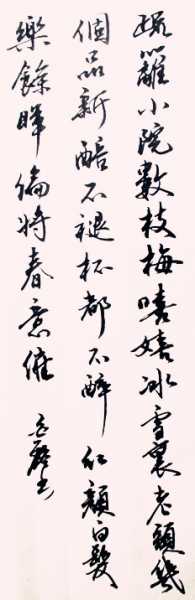 疏籬小院數枝梅嘻嬉冰雪裏老頭幾
個品新醅不褪杯都不醉紅顏白髮
樂餘暉偷將春意催